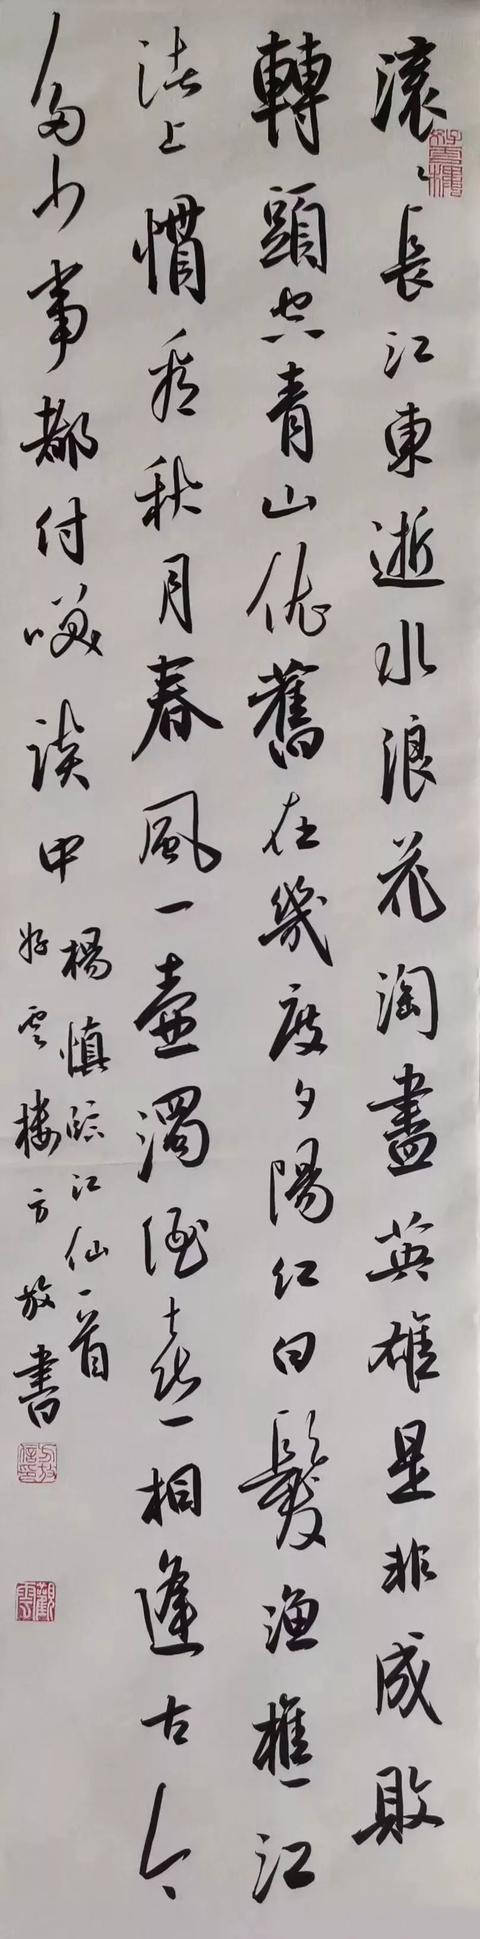 滚〻長江東逝水浪花淘盡英雄是非成敗
轉頭空青山依舊在幾度夕陽紅白髮漁樵江
渚上慣看秋月春風一壺濁酒喜相逢古今
多少事都付咲談中
楊慎臨江仙一首
好雲樓方放書
好雲樓
觀雲